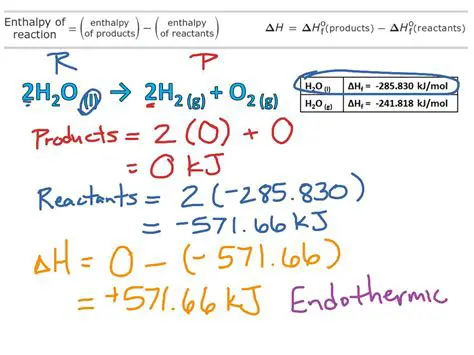 Enthalpy of reaction = (enthalpy of products) − (enthalpy of reactants)
ΔH = ΔH°f(products) − ΔH°f(reactants)
R P
2H₂O (l) → 2H₂ (g) + O₂ (g)
H₂O (l) ΔHf = -285.830 kJ/mol
H₂O (g) ΔHf = -241.818 kJ/mol
Products = 2(0) + 0
= 0 kJ
Reactants = 2(-285.830)
= -571.66 kJ
ΔH = 0 - (-571.66)
= +571.66 kJ Endothermic